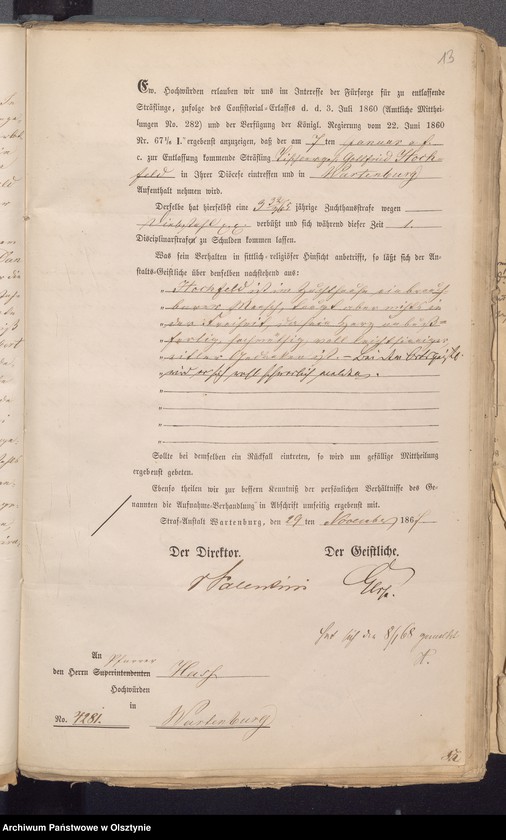 13
Ew. Hochwürden erlauben wir uns im Interesse der Fürsorge für zu entlassende
Sträflinge, zufolge des Consistorial-Erlasses d. d. 3. Juli 1860 (Amtliche Mitthei-
lungen No. 282) und der Verfügung der Königl. Regierung vom 22. Juni 1860
Nr. 67 I. ergebenst anzuzeigen, daß der am 7 ten Januar
c. zur Entlassung kommende Sträfling Gottfried Hoch-
feld in Ihrer Diöcese eintreffen und in Wartenburg
Aufenthalt nehmen wird.
Derselbe hat hierselbst eine jährige Zuchthausstrafe wegen
Diebstahl verbüßt und sich während dieser Zeit 1.
Disciplinarstrafen zu Schulden kommen lassen.
Was sein Verhalten in sittlich-religiöser Hinsicht anbetrifft, so läßt sich der An-
stalts-Geistliche über denselben nachstehend aus:
Hochfeld ist im Zuchthause ein brauch
barer Mensch, taugt aber nichts in
der Freiheit, da sein Herz unbuß-
fertig, voll leichtsinniger
eitler Gedanken ist.
wird er sich wohl schwerlich melden.
Sollte bei demselben ein Rückfall eintreten, so wird um gefällige Mittheilung
ergebenst gebeten.
Ebenso theilen wir zur bessern Kenntniß der persönlichen Verhältnisse des Ge-
nannten die Aufnahme-Verhandlung in Abschrift umseitig ergebenst mit.
Straf-Anstalt Wartenburg, den 29 ten November 186
Der Direktor. Der Geistliche.
v Valentini
hat sich den 8/1 68 gemeldet
An
Pfarrer
den Herrn Superintendenten
Hochwürden
in
No. 7281. Wartenburg
Archiwum Państwowe w Olsztynie